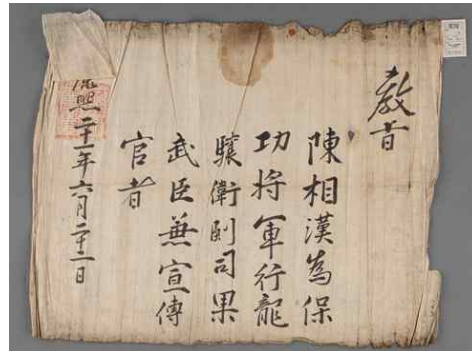 教旨
陳相漢為保
功將軍行龍
驤衛副司果
武臣兼宣傳
官者
康熙二十一年六月二十二日